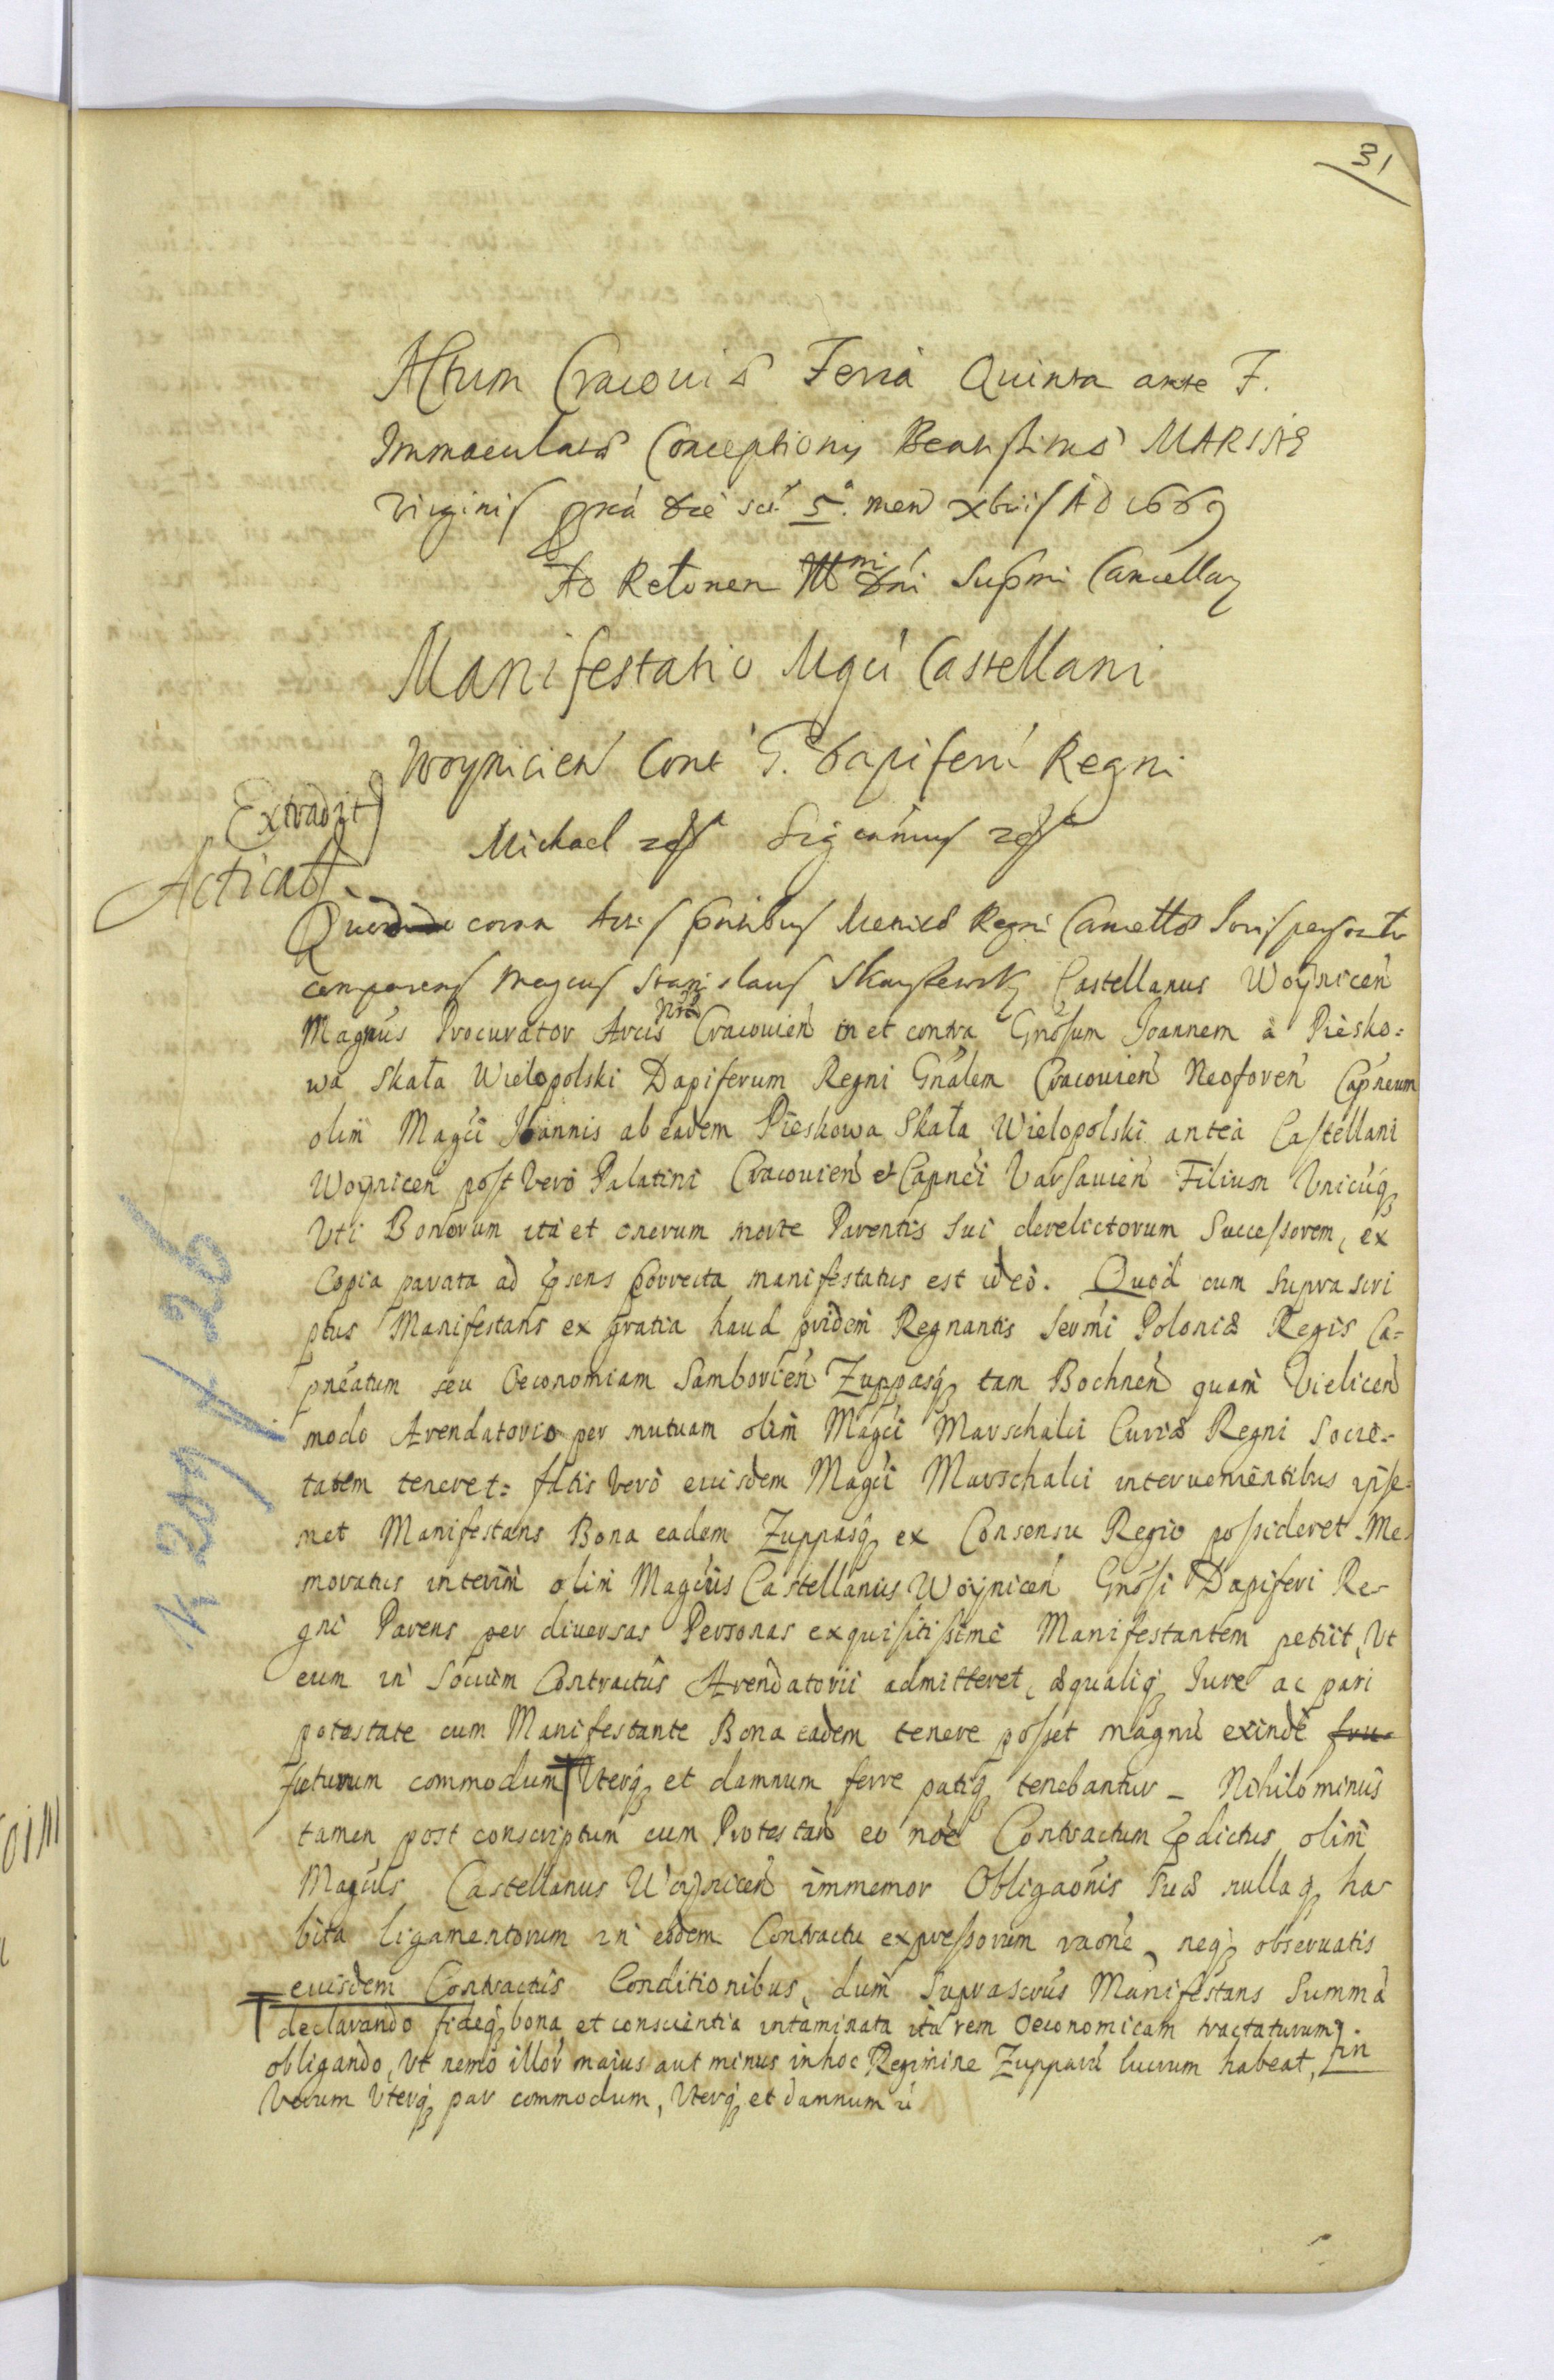 31
Actum Cracouiæ Feria Quinta ante F.
Immaculatæ Conceptionis Beatissimæ MARIÆ
Virginis die 5ª. men Xbris AD 1669
Ad Rełonen Dni Supmi Cancellar
Manifestatio Mgci Castellani
Woynicien Cont G. Dapiferu Regni
Extradit
Michael Significamus
Acticat
Quod coram Actis pntibus Regni
comparens Magcus Stanislaus Skarszewsky Castellanus Woynicen
Magnus Procurator Arcis Nræ Cracouien in et contra Gnosum Joannem a Piesko=
wa Skała Wielopolski Dapiferum Regni Gnalem Cracouien Neoforen Capneum
olim Magci Joannis ab eadem Pieskowa Skała Wielopolski antea Castellani
Woynicen post vero Palatini Cracouien et Capnei Varsauien Filium Vnicuq
Vti Bonorum ita et onerum morte Parentis sui derelictorum Successorem, ex
Copia parata ad psens porrecta manifestatus est ideo. Quod cum supra scri
ptus Manifestans ex gratia haud pridem Regnantis Sermi Poloniæ Regis Ca=
pneatum seu Oeconomiam Samborien Zuppasq tam Bochnen quam Vielicen
modo Arendatorio per mutuam olim Magci Marschalci Curiæ Regni Socie=
tatem teneret: fatis vero euisdem Magci Marschalci interuenientibus ipse=
met Manifestans Bona eadem Zuppasq ex Consensu Regio possideret. Me=
moratus interim olim Magcus Castellanus Woynicen Gnosi Dapiferi Re-
gni Parens per diuersas Personas exquisitissime Manifestantem petiit, Vt
eum in Socium Contractus Arendatorii admitteret, æqualiq Iure ac pari
potestate cum Manifestante Bona eadem tenere posset magnu exinde fru-
futurum commodum Vterq et damnum ferre patiq tenebantur – Nihilominus
tamen post conscriptum cum Protestan eo noe Contractum pdictus olim
Magcus Castellanus Woynicen immemor Obligaonis suæ nullaq ha-
bita ligamentorum in eodem Contractu expressorum raone, neq obseruatis
euisdem Contractus Conditionibus, dum suprascrus Manifestans Summa
declarando fideq bona et conscientia intaminata ita rem oeconomicam tractaturum
obligando, Vt nemo illor maius aut minus in hoc Regimine Zupparu lucrum habeat,
Verum Vterq par commodum, Vterq et damnum ū
k 207/26